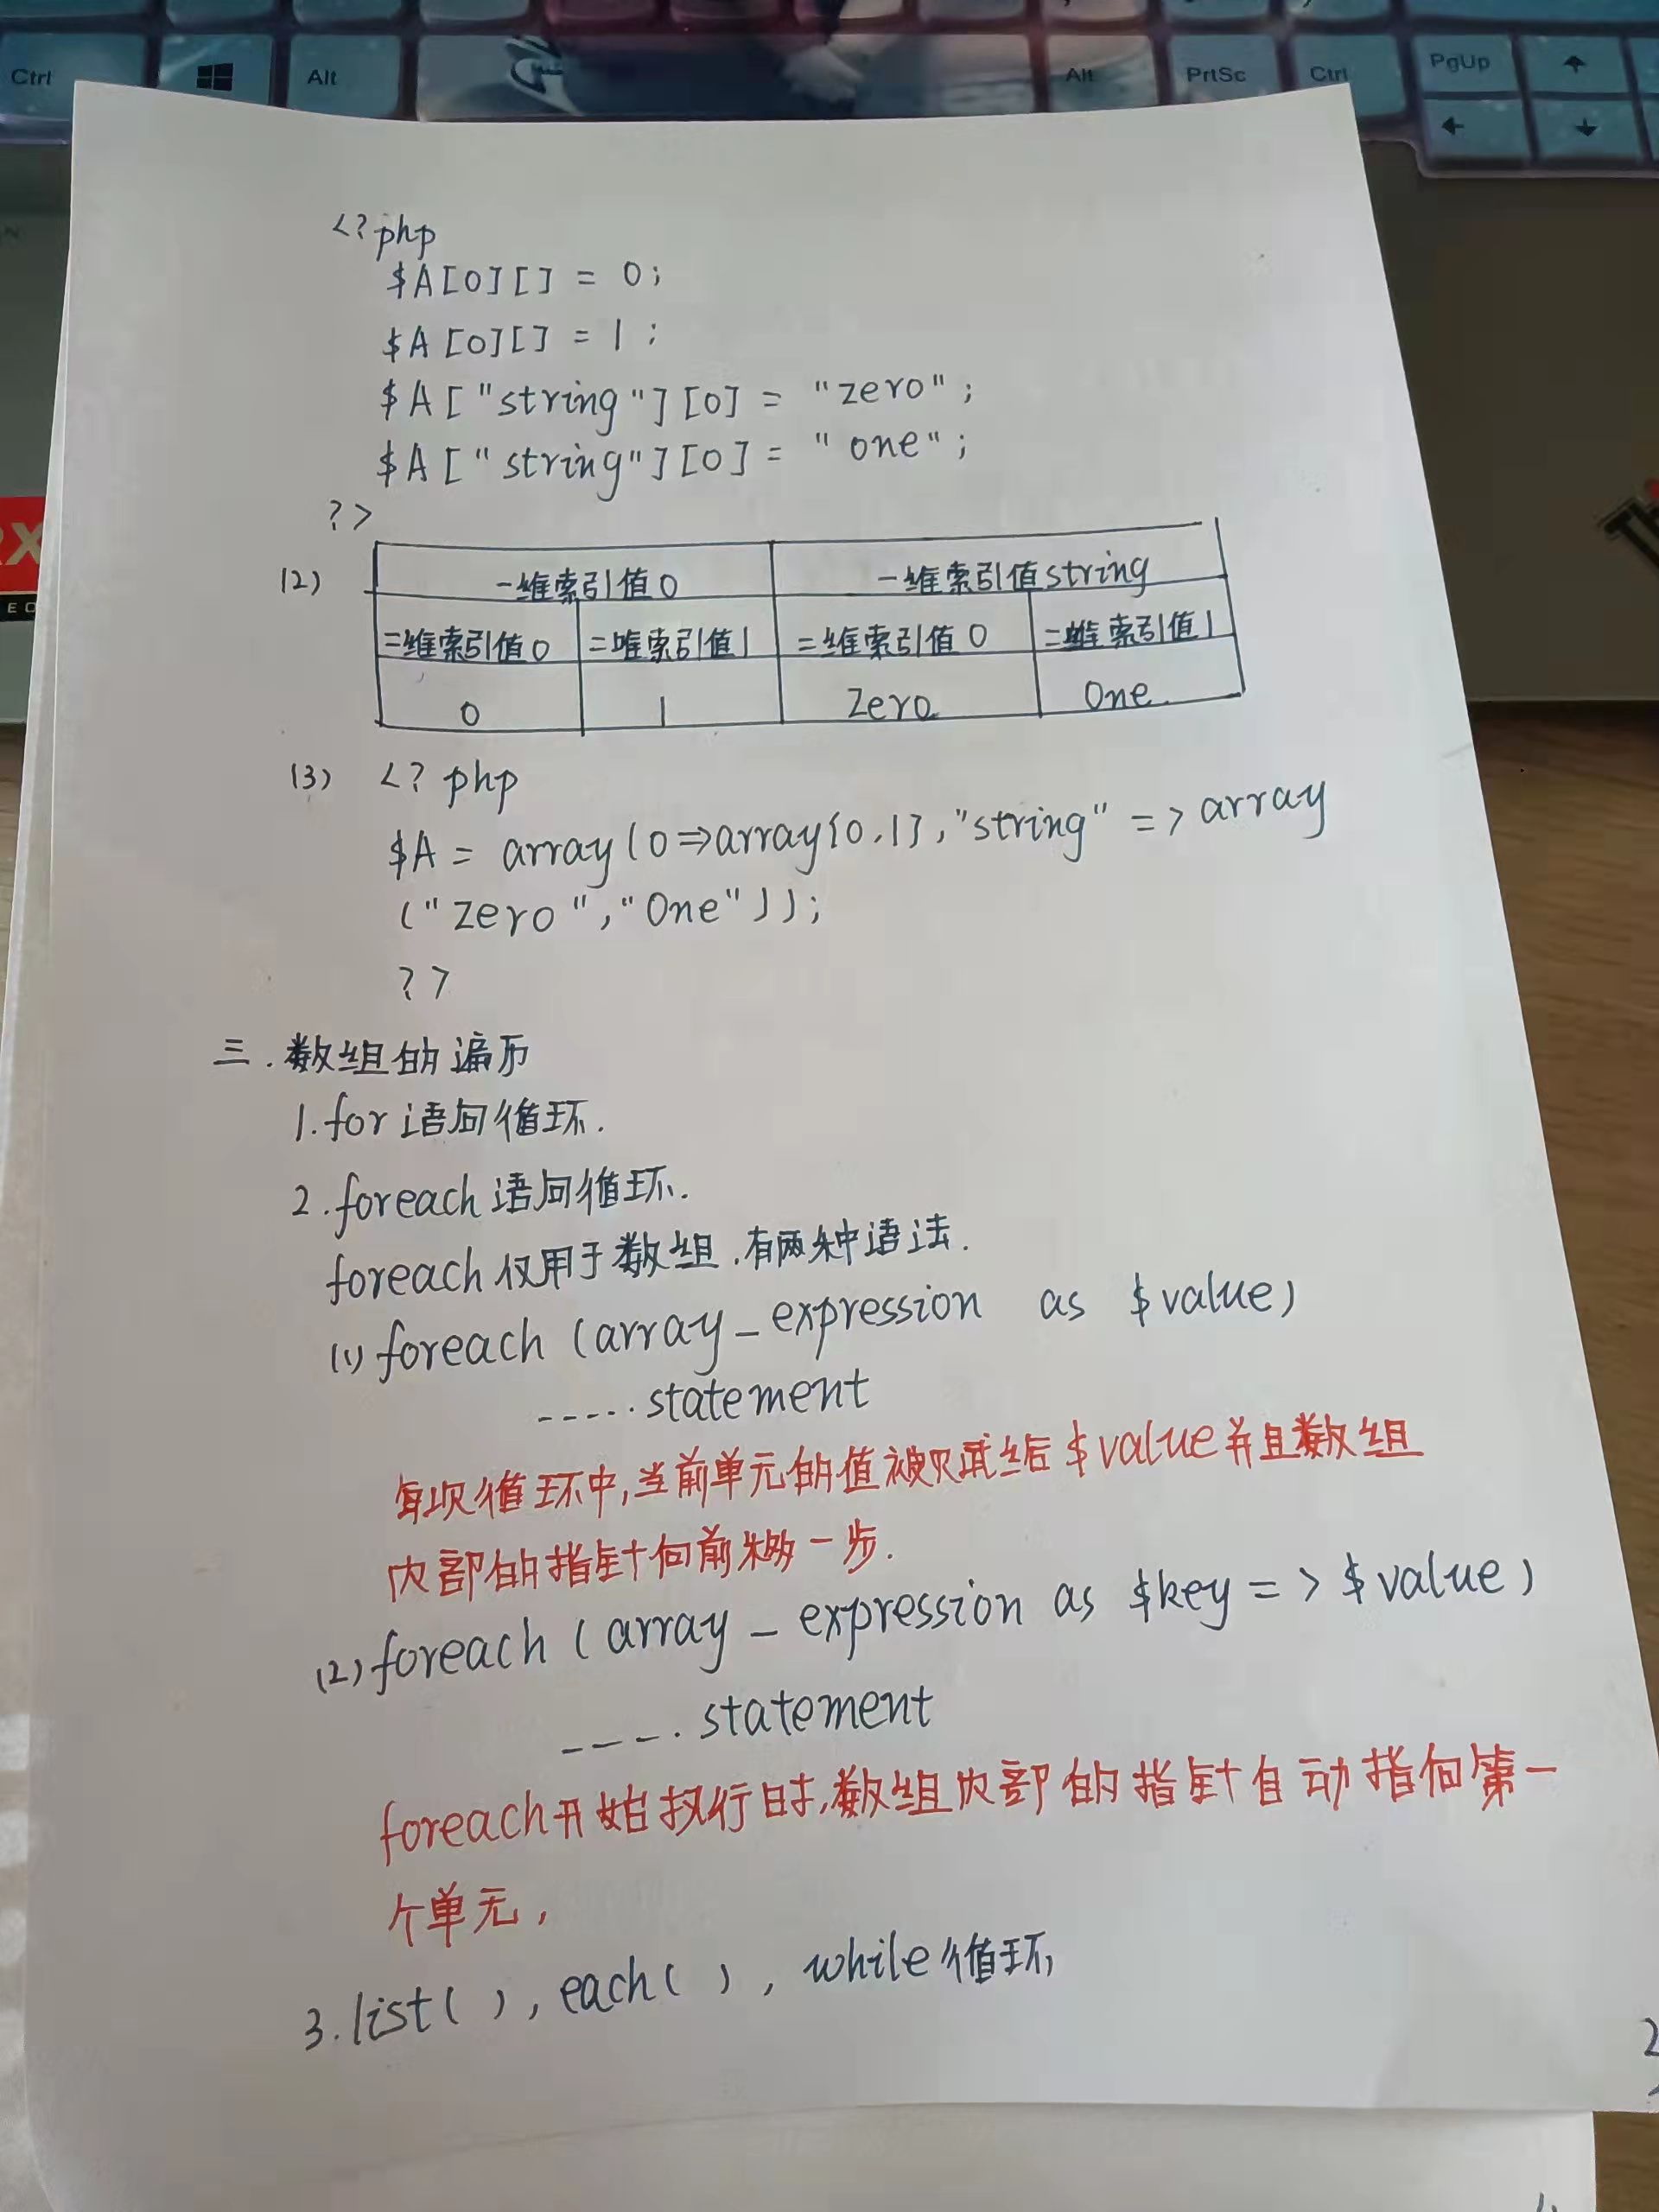 Ctrl
Alt
Alt
PrtSc
Ctrl
PgUp
<?php
$A[0][] = 0;
$A[0][] = 1;
$A["string"][0] = "zero";
$A["string"][0] = "one";
?>
(2) 一维索引值0 一维索引值string
二维索引值0 二维索引值1 二维索引值0 二维索引值1
0 1 Zero One
(3) <?php
$A = array(0=>array{0,1},"string"=>array
("Zero","One"));
?>
三.数组的遍历
1.for语句循环.
2.foreach语句循环.
foreach仅用于数组.有两种语法.
(1)foreach(array_expression as $value)
.....statement
每次循环中,当前单元的值被赋给$value并且数组
内部的指针向前移一步.
(2)foreach(array_expression as $key=>$value)
----.statement
foreach开始执行时,数组内部的指针自动指向第一
个单元,
3.list(),each(),while循环,
2